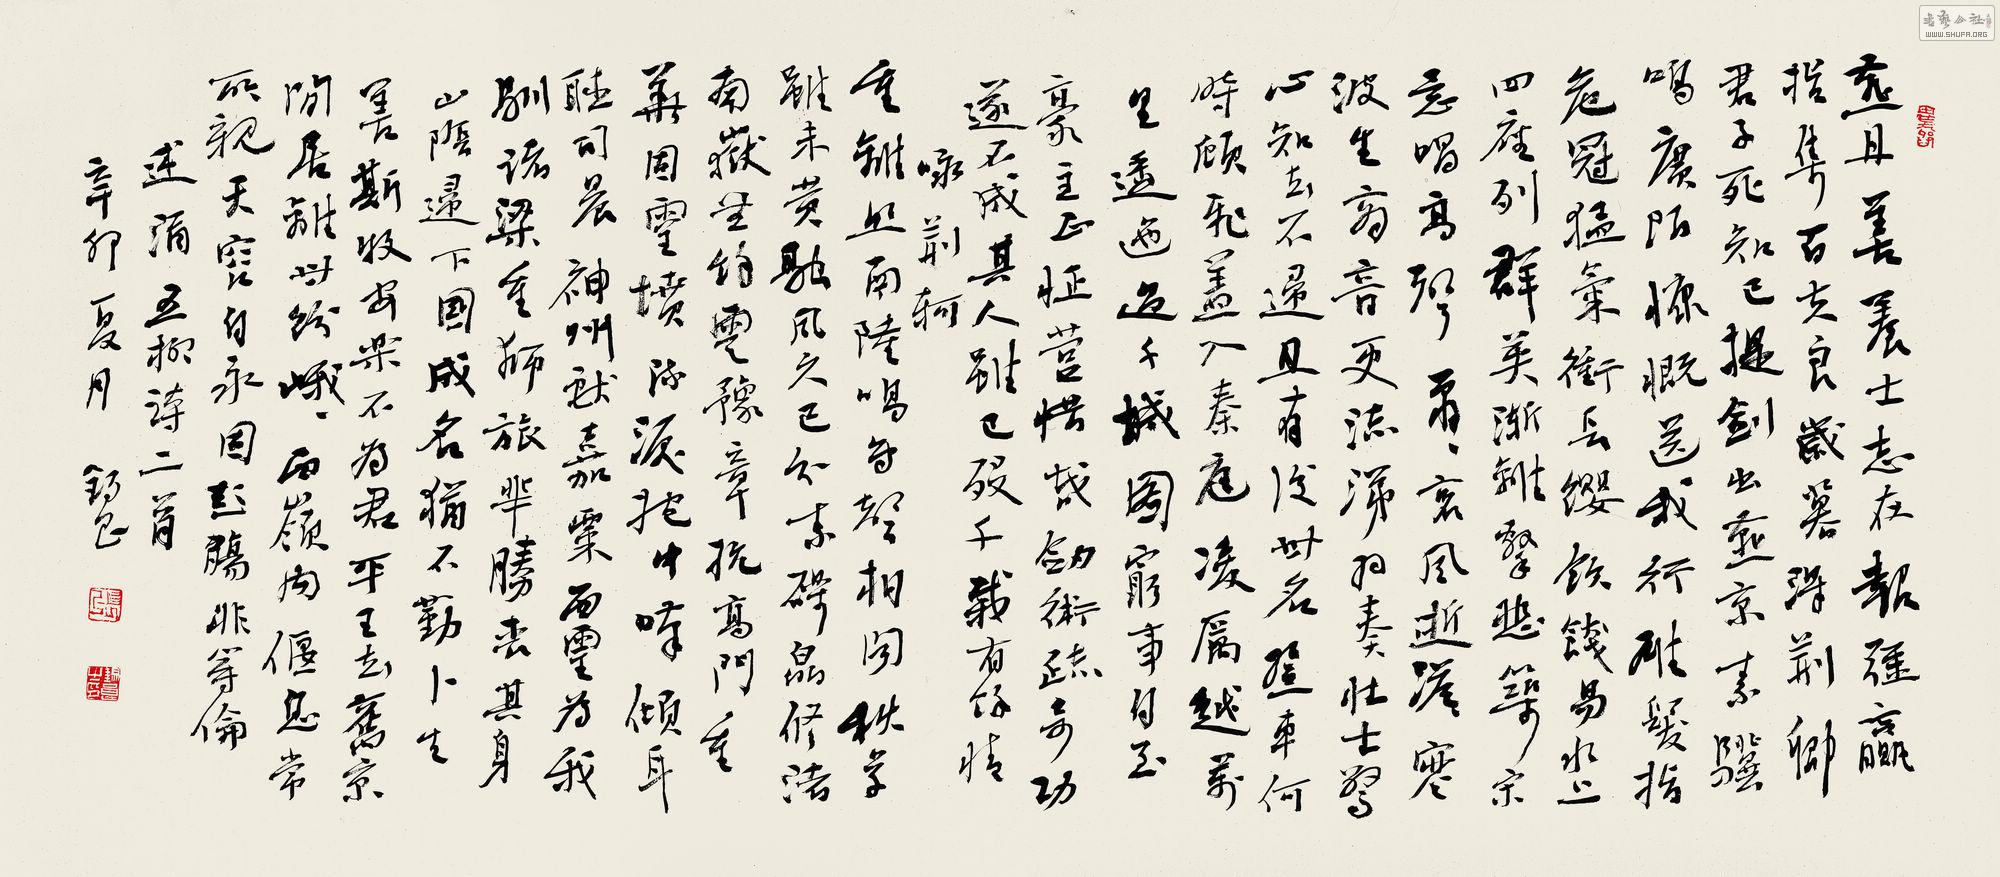 燕丹善養士志在報強嬴
招集百夫良歲暮得荊卿
君子死知己提劍出燕京素驥
鳴廣陌慷慨送我行雄髮指
危冠猛氣衝長纓飲餞易水上
四座列群英漸離擊悲筑宋
意唱高聲蕭〻哀風逝澹寒
波生商音更流涕羽奏壯士驚
心知去不歸且有後世名登車何
時顧飛蓋入秦庭凌厲越萬
里逶迤過千城圖窮事自至
豪主正怔營惜哉劍術疏奇功
遂不成其人雖已歿千載有餘情
詠荊軻
重離照南陸鳴鳥聲相聞秋草
雖未黃融風久已分素礫皛修渚
南嶽無餘雲豫章抗高門重
華固靈墳流淚抱中嘆傾耳
聽司晨神州獻嘉粟西靈為我
馴諸梁董師旅羋勝喪其身
山陽歸下國成名猶不勤卜生
善斯牧安樂不為君平王去舊京
閒居離世紛峨〻西嶺內偃息常
所親天容自永固彭殤非等倫
述酒 五柳詩二首
辛卯夏月
WWW.SHUFA.ORG